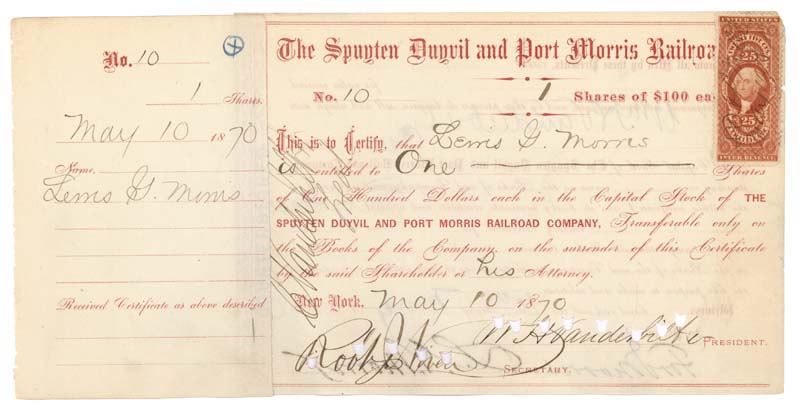 No. 10
1 Shares.
May 10 1870
Name,
Lewis G. Morris
Received Certificate as above described
The Spuyten Duyvil and Port Morris Railroa
No. 10 1 Shares of $100 ea
This is to Certify, that Lewis G. Morris
is entitled to One Shares
of One Hundred Dollars each in the Capital Stock of THE
SPUYTEN DUYVIL AND PORT MORRIS RAILROAD COMPANY, Transferable only on
the Books of the Company, on the surrender of this Certificate
by the said Shareholder or his Attorney.
New York, May 10 1870
W H Vanderbilt PRESIDENT.
SECRETARY.
UNITED STATES
25
25
INTER. REVENUE